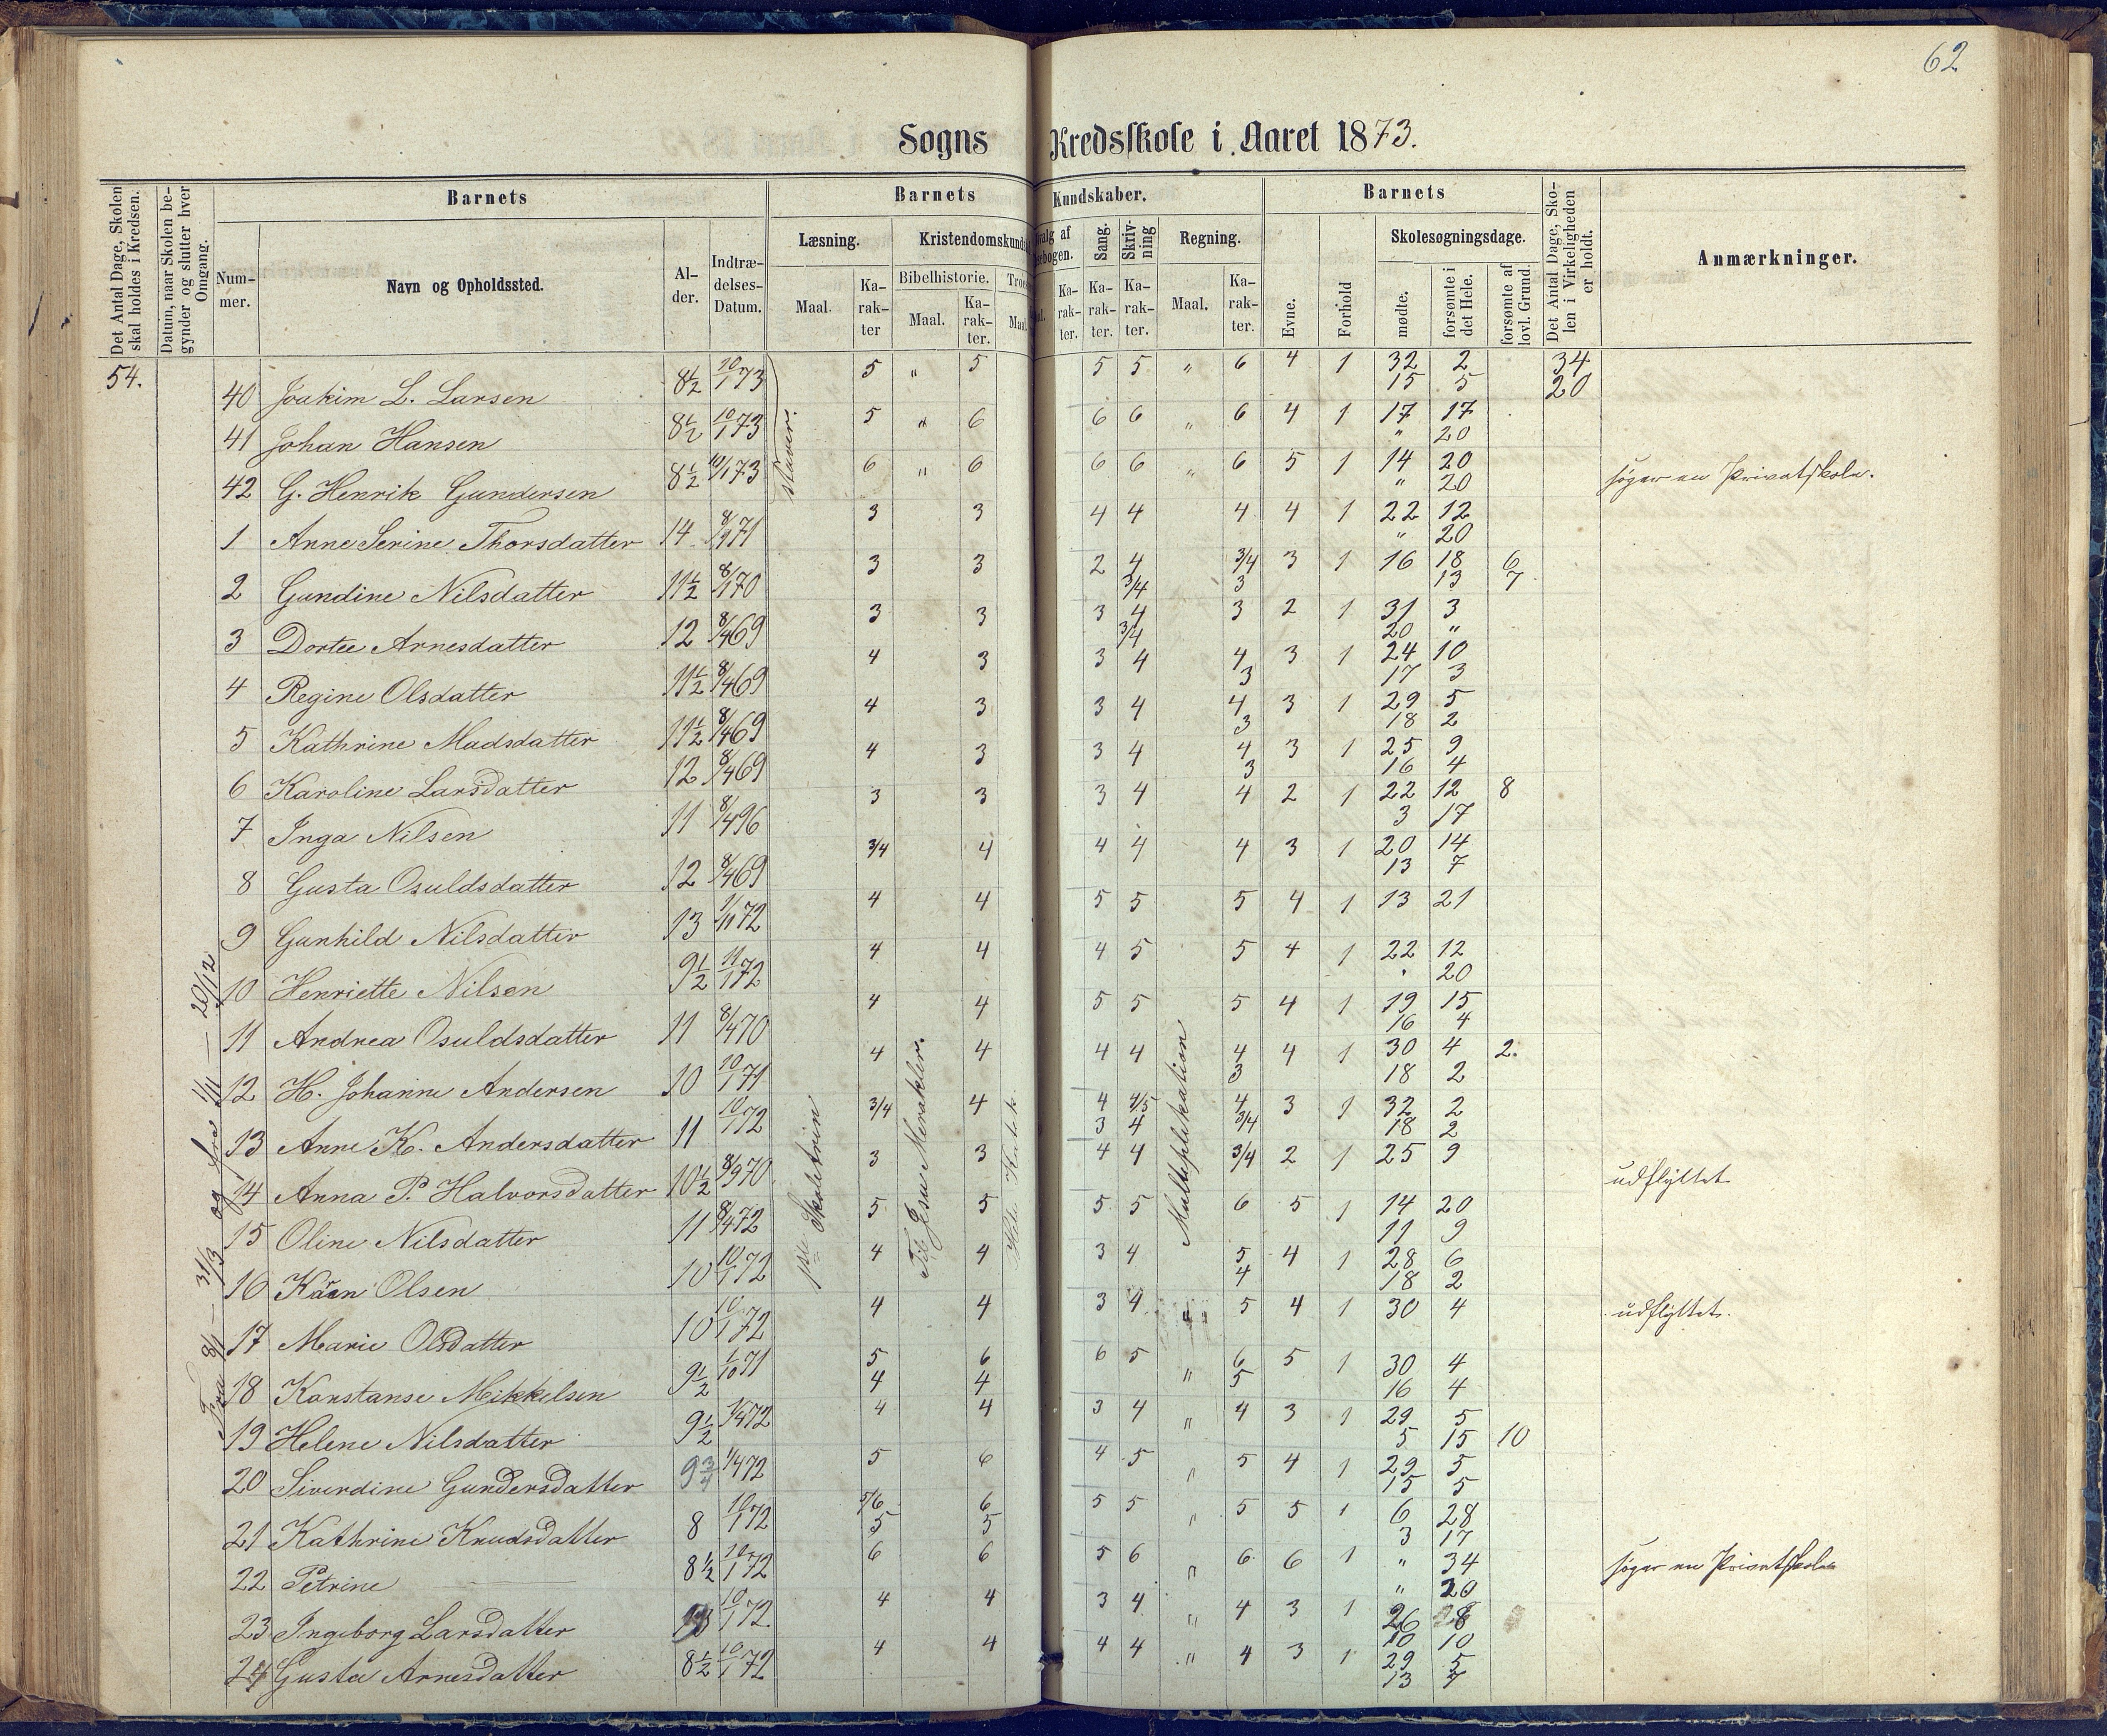 62
Sogns Kredsskole i Aaret 1873.
Det Antal Dage, Skolen skal holdes i Kredsen.
Datum, naar Skolen begynder og slutter hver Omgang.
Barnets
Nummer.
Navn og Opholdssted.
Alder.
Indtrædelses-Datum.
Barnets Kundskaber.
Læsning.
Maal.
Karakter
Kristendomskundsk
Bibelhistorie.
Maal.
Karakter.
Troes
Maal
dvalg af
sebogen.
Karakter.
Sang.
Karakter.
Skrivning
Karakter.
Regning.
Maal.
Karakter.
Barnets
Evne.
Forhold
Skolesøgningsdage.
mødte.
forsømte i det Hele.
forsømte af lovl. Grund.
Det Antal Dage, Skolen i Virkeligheden er holdt.
Anmærkninger.
54.
Fra 8/1 — 31/3 og fra 1/11 — 20/12
staver.
1ste Skoletrin
Til Jesu Mirakler.
Multiplikation
40 Joakim L. Larsen 8½ 10/1 73 5 " 5 5 5 " 6 4 1 32 2 34
15 5 20
41 Johan Hansen 8½ 10/1 73 5 " 6 6 6 " 6 4 1 17 17
" 20
42 G. Henrik Gundersen 8½ 10/1 73 6 " 6 6 6 " 6 5 1 14 20 søger en Privatskole.
" 20
1 Anne Serine Thorsdatter 14 8/9 71 3 3 4 4 4 4 1 22 12
" 20
2 Gundine Nilsdatter 11½ 8/1 70 3 3 2 4 3/4 3 1 16 18 6
3/4 3 13 7
3 Dortee Arnesdatter 12 8/4 69 3 3 3 4 3 2 1 31 3
3/4 20 "
4 Regine Olsdatter 11½ 8/4 69 4 3 3 4 4 3 1 24 10
3 17 3
5 Kathrine Madsdatter 11½ 8/4 69 4 3 3 4 4 3 1 29 5
3 18 2
6 Karoline Larsdatter 12 8/4 69 4 3 3 4 4 3 1 25 9
3 16 4
7 Inga Nilsen 11 8/4 96 3 3 3 4 4 2 1 22 12 8
3 17
8 Gusta Osuldsdatter 12 8/4 69 3/4 4 4 4 4 3 1 20 14
13 7
9 Gunhild Nilsdatter 13 1/11 72 4 4 5 5 5 4 1 13 21
10 Henriette Nilsen 9½ 11/1 72 4 4 4 5 5 4 1 22 12
" 20
11 Andrea Osuldsdatter 11 8/4 70 4 4 5 5 5 4 1 19 15
16 4
12 H. Johanne Andersen 10 10/1 71 4 4 4 4 4 4 1 30 4 2.
3 18 2
13 Anne K. Andersdatter 11 10/1 72 3/4 4 4 4/5 4 3 1 32 2
3 4 3/4 18 2
14 Anna P. Halvorsdatter 10½ 8/9 70 3 3 4 4 3/4 2 1 25 9 udflyttet
15 Oline Nilsdatter 11 8/4 72 5 5 5 5 6 5 1 14 20
11 9
16 Kären Olsen 10 10/1 72 4 4 3 4 5 4 1 28 6
4 18 2
17 Marie Olsdatter 10 10/1 72 4 4 3 4 " 5 4 1 30 4 udflyttet.
18 Konstanse Mikkelsen 9½ 1/10 71 5 6 6 5 " 6 5 1 30 4
4 4 5 16 4
19 Helene Nilsdatter 9½ 1/4 72 4 4 3 4 " 4 3 1 29 5
5 15 10
20 Siverdine Gundersdatter 9¾ 1/4 72 5 6 4 5 " 5 4 1 29 5
15 5
21 Kathrine Knudsdatter 8 10/1 72 5/6 6 5 5 " 5 5 1 6 28
5 5 3 17
22 Petrine — 8½ 10/1 72 6 6 5 6 " 6 6 1 " 34 søger en Privatskole
" 20
23 Ingeborg Larsdatter 10/1 72 4 4 3 4 " 4 3 1 26 8
10 10
24 Gusta Arnesdatter 8½ 10/1 72 4 4 4 4 " 4 3 1 29 5
13 7